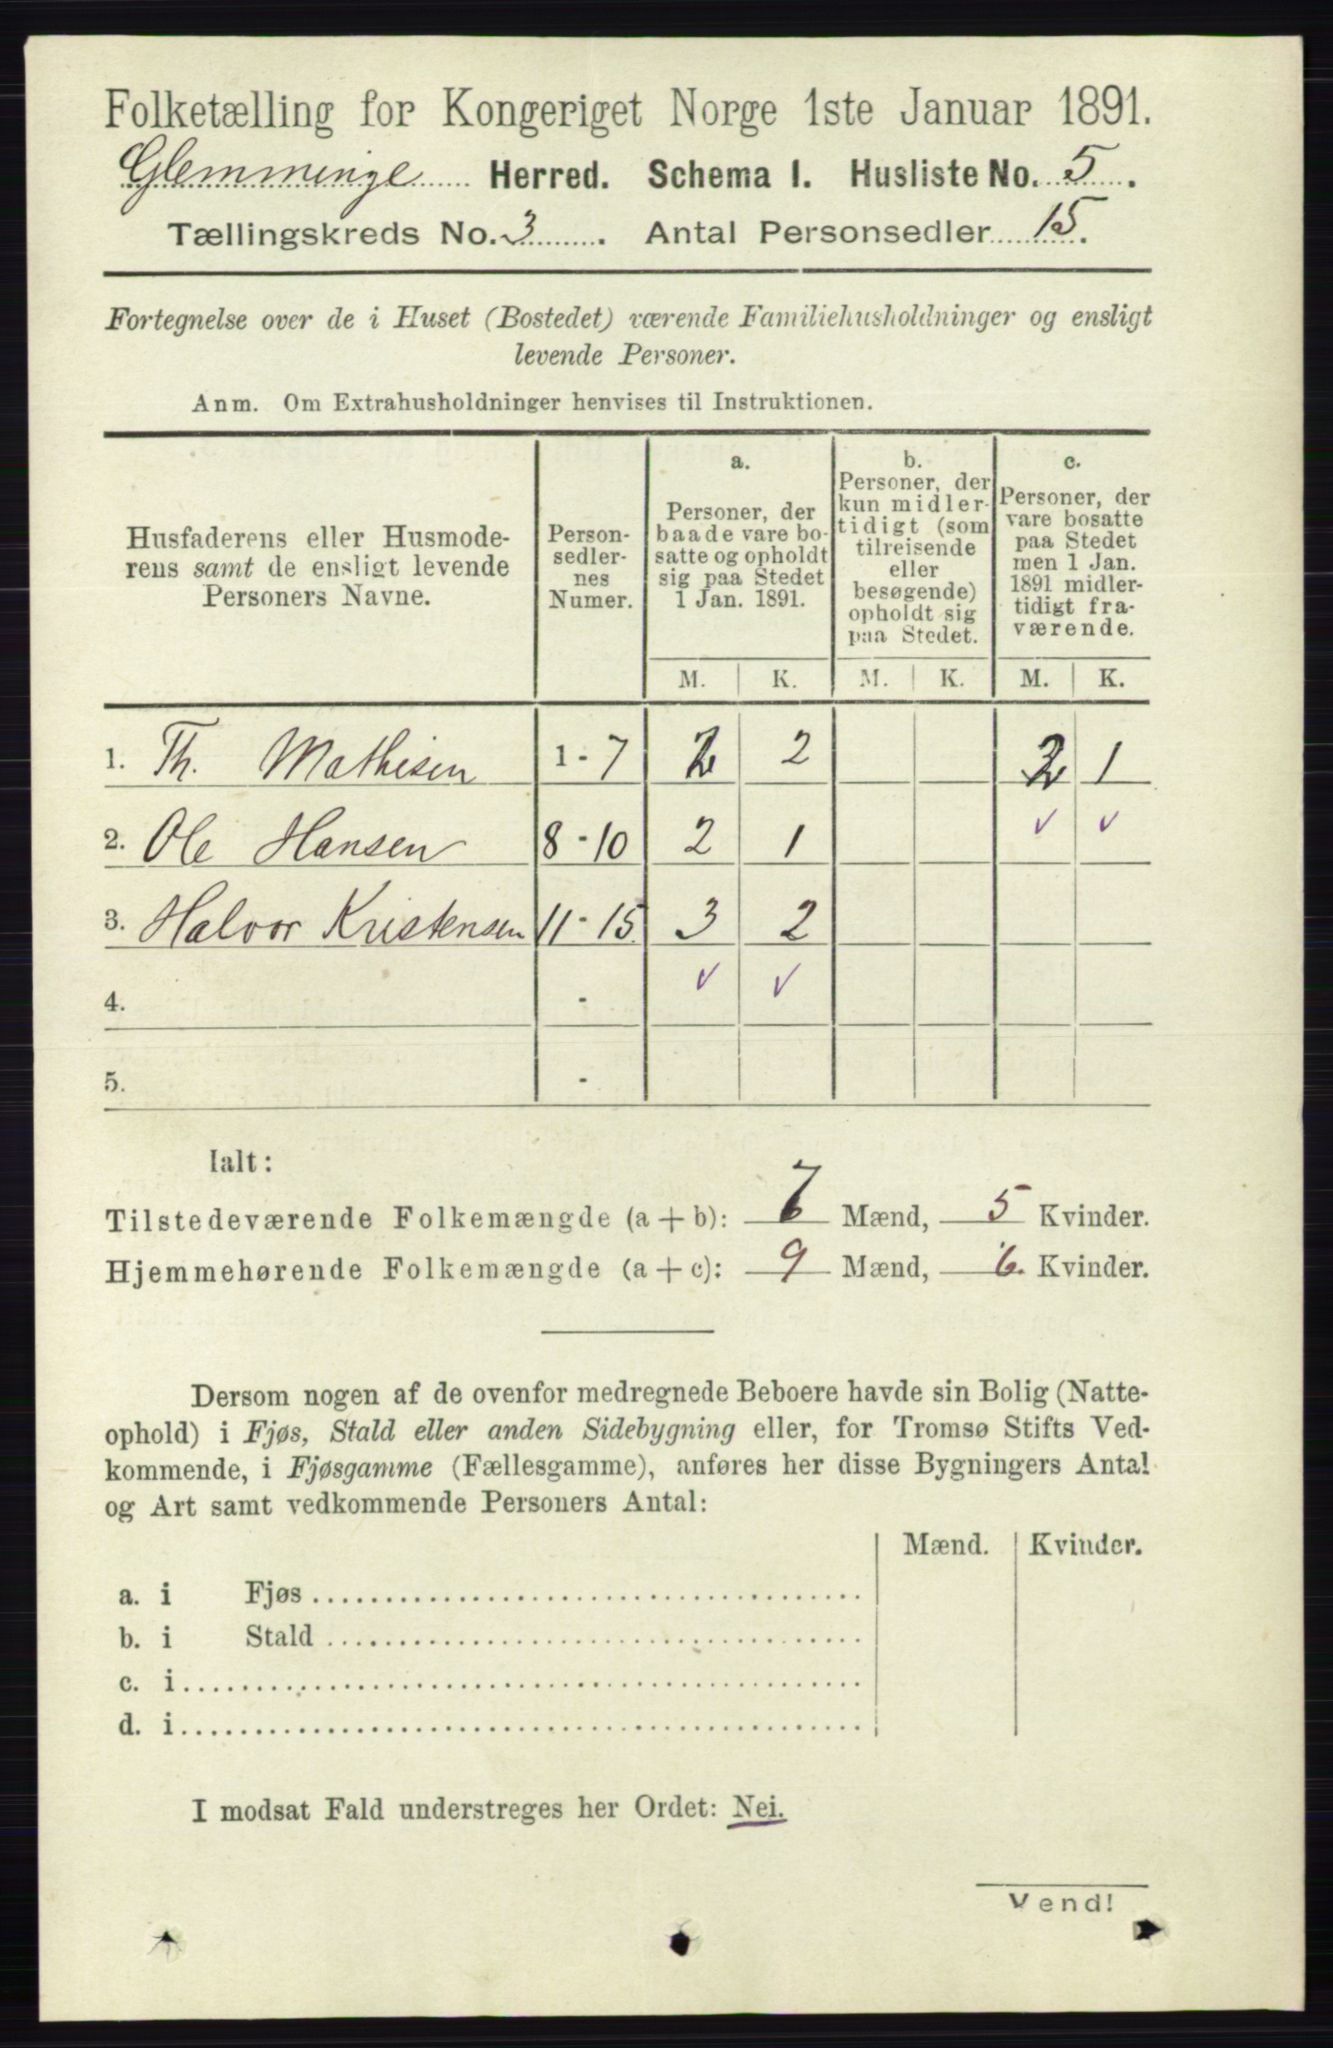 Folketælling for Kongeriget Norge 1ste Januar 1891.
Glemminge Herred. Schema I. Husliste No. 5.
Tællingskreds No. 3. Antal Personsedler 15.
Fortegnelse over de i Huset (Bostedet) værende Familiehusholdninger og ensligt
levende Personer.
Anm. Om Extrahusholdninger henvises til Instruktionen.
Husfaderens eller Husmode-
rens samt de ensligt levende
Personers Navne.
Person-
sedler-
nes
Numer.
a.
Personer, der
baade vare bo-
satte og opholdt
sig paa Stedet
1 Jan. 1891.
b.
Personer, der
kun midler-
tidigt (som
tilreisende
eller
besøgende)
opholdt sig
paa Stedet.
c.
Personer, der
vare bosatte
paa Stedet
men 1 Jan.
1891 midler-
tidigt fra-
værende.
M. K. M. K. M. K.
1. Th. Mathisen 1 - 7 2 2 2 1
2. Ole Hansen 8 - 10 2 1
3. Halvor Kristensen 11 - 15 3 2
4. -
5. -
Ialt:
Tilstedeværende Folkemængde (a + b): 7 Mænd, 5 Kvinder.
Hjemmehørende Folkemængde (a + c): 9 Mænd, 6. Kvinder.
Dersom nogen af de ovenfor medregnede Beboere havde sin Bolig (Natte-
ophold) i Fjøs, Stald eller anden Sidebygning eller, for Tromsø Stifts Ved-
kommende, i Fjøsgamme (Fællesgamme), anføres her disse Bygningers Antal
og Art samt vedkommende Personers Antal:
Mænd. Kvinder.
a. i Fjøs
b. i Stald
c. i
d. i
I modsat Fald understreges her Ordet: Nei.
Vend!